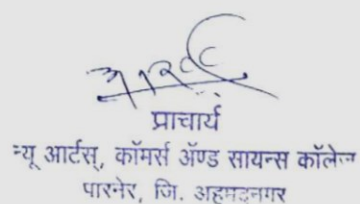 प्राचार्य
न्यू आर्टस्, कॉमर्स ॲण्ड सायन्स कॉलेज
पारनेर, जि. अहमदनगर